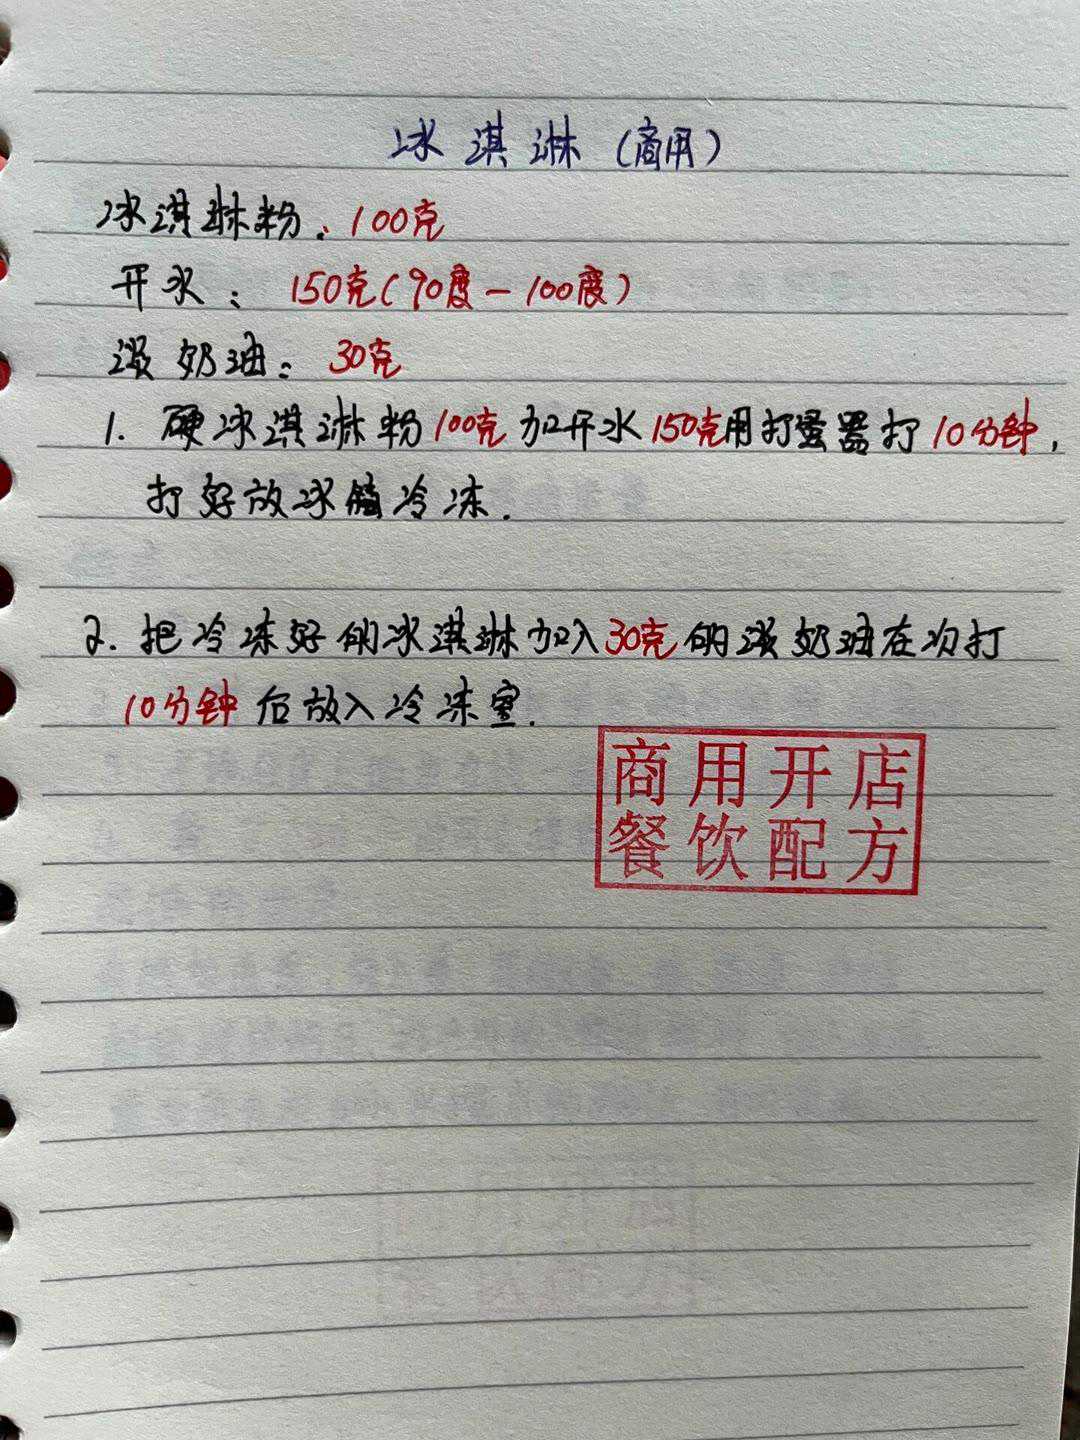 冰淇淋（商用）
冰淇淋粉：100克
开水：150克（90度－100度）
淡奶油：30克
1. 硬冰淇淋粉100克加开水150克用打蛋器打10分钟，
打好放冰箱冷冻.
2. 把冷冻好的冰淇淋加入30克的淡奶油在次打
10分钟后放入冷冻室.
商用开店
餐饮配方